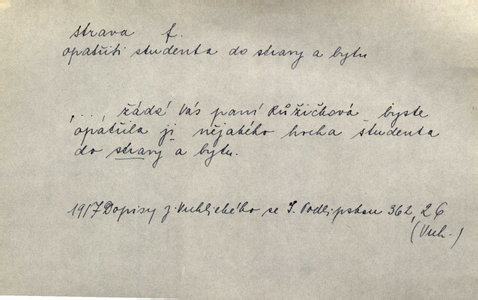 strava f.
opatřiti studenta do stravy a bytu
„..., žádá Vás paní Růžičková byste
opatřila jí nějakého hocha studenta
do stravy a bytu.
1917 Dopisy J. Vrchlického se S. Podlipskou 362, 26
(Vrch.)